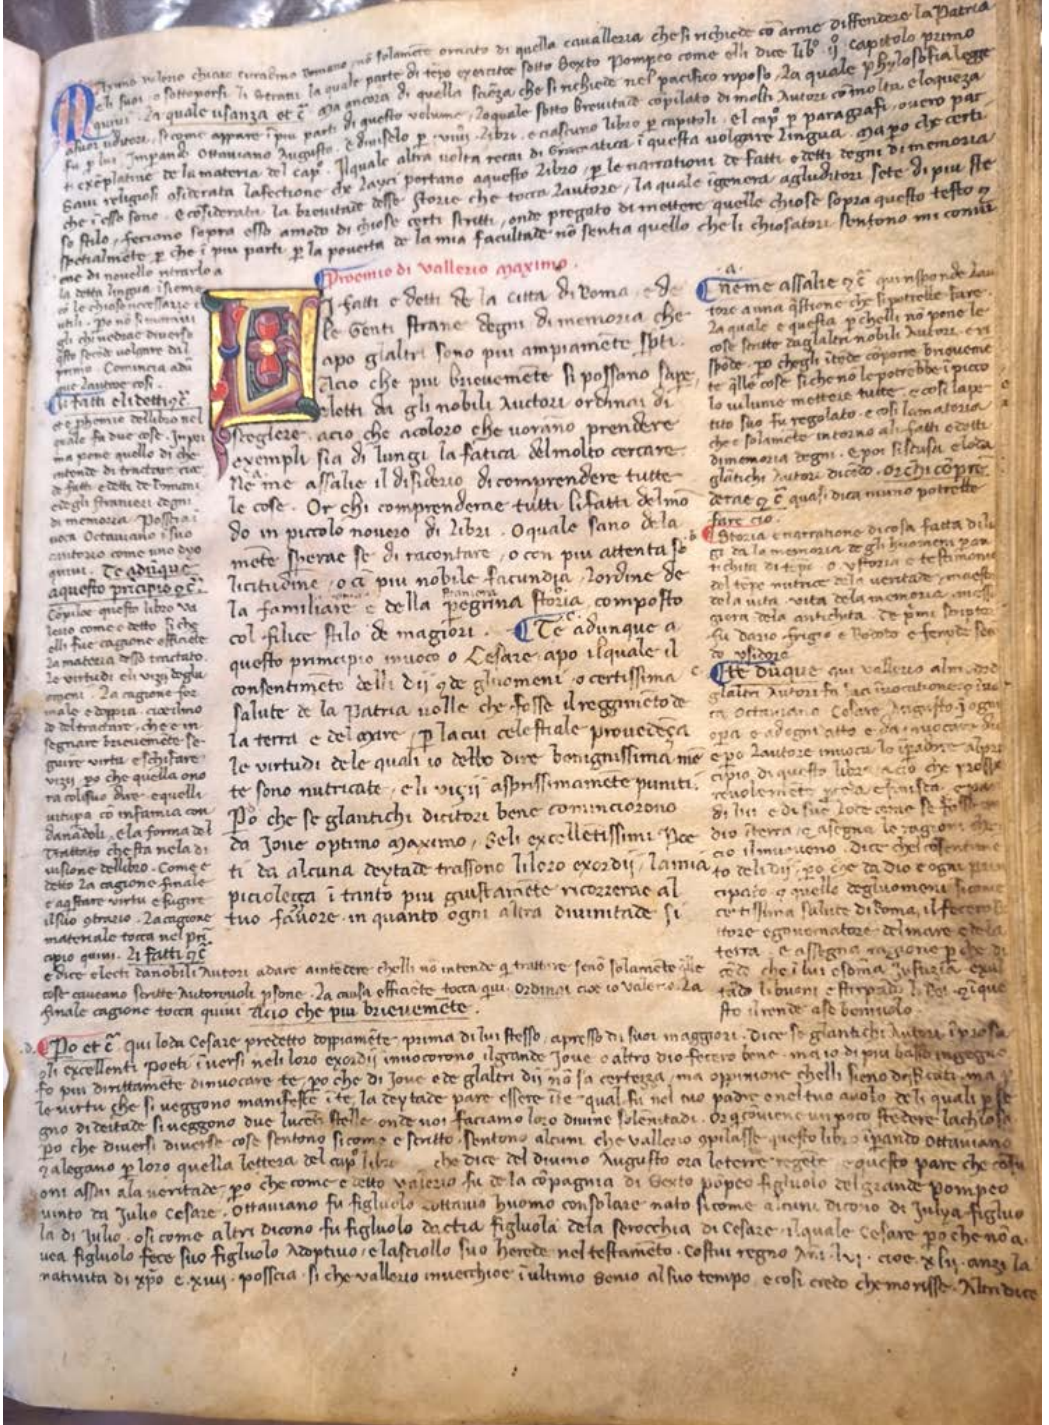 chiaro romano nō solamēte ornato di quella cavalleria che si richiede cō arme diffendere la Patria
li suoi o sottoporsi li strani la quale parte di tēpo exercitoe sotto Sexto Pompeo come elli dice libº ijº capitolo primo
quivi la quale usanza et c̄ ma ancora di quella sciēza che si richiede nel pacifico riposo la quale phylosofia legge
suoi uditori sicome appare ī piu parti di questo volume loquale sotto brevitade cōpilato di molti Autori cō molta eloquēza
fu p lui Impando Ottaviano Augusto e diviselo p viiij libri e ciascuno libro p capitoli el capº p paragrafi overo par
ti exēplative de la materia del capº Ilquale altra volta recai di Gramatica ī questa volgare lingua ma po che certi
Savi religiosi cōsiderata lafectione che layci portano aquesto libro p le narrationi de fatti e detti degni di memoria
che ī esso sono e cōsiderata la brevitade desse storie che tocca lautore la quale īgenera agluditori sete di piu ste
so stilo feciono sopra esso amodo di chiose certi scritti onde pregato di mettere quelle chiose sopra questo testo
spetialmēte p che ī piu parti p la poverta de la mia facultade nō sentia quello che li chiosatori sentono mi conviē
ne di novello ritrarlo a
la detta lingua īsieme
cō le chiose necessarie
utili Po nō si maravi
gli chi vedrae diverso
q̄sto secōdo volgare dal
primo Comincia adū
que lautore cosi
Li fatti eli detti c̄
et e phemio del libro nel
quale fa due cose Impri
ma pone quello di che
intende di tractare cioe
de fatti e detti de Romani
edegli stranieri degni
di memoria Posscia
voca Octaviano ī suo
adiutorio come uno dyo
quivi Te adūque
aquesto principio c̄
Cōpiloe questo libro Va
lerio come e detto si che
elli fue cagione efficiēte
la materia desso tractato
le virtudi eli vizij degli
omeni La cagione for
male e doppia cioe il mo
do del tractare che e in
segnare brievemēte se
guire virtu e schifare
vizij po che quella ono
ra col suo dire equelli
vitupa cō infamia con
danādoli e la forma del
trattato che sta ne la di
visione del libro Come e
detto la cagione finale
e aq̄stare virtu e fugire
il suo ɔtrario La cagione
materiale tocca nel prī
cipio quivi Li fatti c̄
e dice electi da nobili Autori adare aintēdere chelli nō intende trattare senō solamēte
cose caveano scritte Autorevoli psone La causa efficiēte tocca qui Ordinai cioe io Valerio La
finale cagione tocca quivi Acio che piu brievemēte
Proemio di Vallerio Maximo
Li fatti e detti de la Citta di Roma e de
le Genti strane degni di memoria che
apo glaltri sono piu ampiamēte spti
Acio che piu brievemēte si possano sape
eletti da gli nobili Auctori ordinai di
sceglere acio che acoloro che vorāno prendere
exempli sia di lungi la fatica del molto cercare
Ne a me assalie il disiderio di comprendere tutte
le cose Or chi comprenderae tutti li fatti del mō
do in piccolo novero di libri O quale sano de la
mēte sperae se di racontare o con piu attenta so
licitudine o cō piu nobile facundia lordine de
la familiare e della pegrina storia composto
col filice stilo de magiori Te adunque a
questo principio invoco o Cesare apo ilquale il
consentimēto delli Dij de gluomeni o certissima
salute de la Patria volle che fosse il reggimēto de
la terra e del mare p la cui celestiale provedēça
le virtudi dele quali io debbo dire benignissima mē
te sono nutricate e li vizij asprissimamēte puniti
Po che se glantichi dicitori bene cominciorono
da Jove optimo Maximo Seli excellētissimi Poe
ti da alcuna deytade trassono li loro exordij la mia
picioleçça ī tanto piu giustamēte ricorrerae al
tuo favore in quanto ogni altra divinitade si
a
Ne a me assalie c̄ qui risponde lau
tore a una q̄stione che si potrebbe fare
La quale e questa p chelli nō pone le
cose scritte daglaltri nobili Autori e ri
spōde po chegli ītēde cōporre brievemē
te q̄lle cose si che nō le potrebbe ī picco
lo volume mettere tutte e cosi lape
tito suo fu regolato e cosi la materia
che e solamēte intorno ali fatti e detti
di memoria degni e poi si scusa e loda
glātichi Autori dicēdo Or chi cōpre
derae c̄ quasi dica niuno potrebbe
fare cio
b
Storia e narratione di cosa fatta di lū
gi da la memoria degli huomeni p an
tichita di tēpo o ystoria e testimonio
del tēpo nutrice de la veritade maestra
de la vita vita de la memoria messa
giera dela antichita De p̄mi scriptori
fu Dario frigio
do ysidoro
c
Te dūque qui Vallerio
glaltri Autori fa la īvocatione
ca Octaviano Cesare Augusto
opa e ad ogni atto e da invocare
e po lautore invoca lo īpadre
cipio di questo libro acio che
di lui e di sue lode come se fosse
dio ī terra e asegna le ragioni
cio il muoveno dice che cosentimē
to deli dij po che da Dio e ogni prin
cipato quello degluomeni si come
certissima salute di Roma il fecero
tore egovernatore del mare e dela
terra e assegna ragione p che
cede che ī lui e somma justizia
tādo li buoni
sto il rende a se benivolo
d
Po et c̄ qui loda Cesare predetto doppiamēte prima di lui stesso apresso di suoi maggiori Dice se glantichi Autori ī prosa
li excellenti Poeti ī versi neli loro exordij invocorono il grande Jove o altro dio fecero bene ma io di piu basso ingegno
fo piu dirittamēte dinvocare te po che di Jove e de glaltri dij nō sa certezza ma oppinione chelli sieno
le virtu che si veggono manifeste ī te la deytade pare essere ī te qual fu nel tuo padre e nel tuo avolo deli quali p se
gno di deitade si veggono due lucēti stelle onde noi faciamo loro divine solēnitadi Or cōviene un poco stēdere la chiosa
po che diversi diverse cose sentono sicome e scritto Sentono alcuni che Vallerio ɔpilasse questo libro īpando Ottaviano
alegano p loro quella lettera del capº libro che dice del divino Augusto ora le terre
oni assai ala veritade po che come e detto Valerio fu de la cōpagnia di Sexto pōpeo figluolo del grande Pompeo
vinto da Julio Cesare Ottaviano fu figluolo Ottavio huomo consolare nato sicome alcuni dicono di Julya figluo
la di Julio o si come altri dicono fu figluolo dactia figluola dela serocchia di Cesare ilquale Cesare po che nō a
vea figluolo fece suo figluolo Adoptivo e lasciollo suo herede nel testamēto Costui regno Ani lvi cioe xlij anzi la
nativita di xpo e xiiij posscia si che Vallerio invecchioe ī ultimo senio al suo tempo e cosi credo che morisse Altri dice